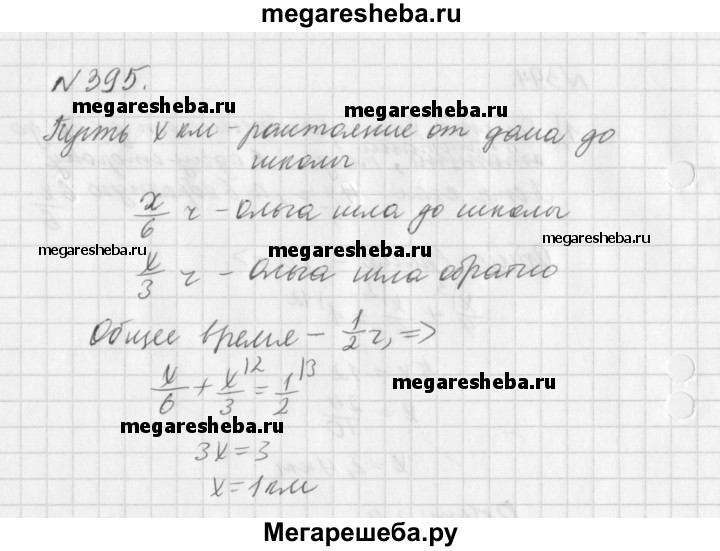 megaresheba.ru
N 395.
megaresheba.ru
megaresheba.ru
Пусть x км - расстояние от дома до
школы
x/6 ч - Ольга шла до школы
megaresheba.ru
megaresheba.ru
megaresheba.ru
x/3 ч - Ольга шла обратно
Общее время - 1/2 ч, =>
x/6 + x/3 |2 = 1/2 |3
megaresheba.ru
megaresheba.ru
3x = 3
x = 1 км
Мегарешеба.ру